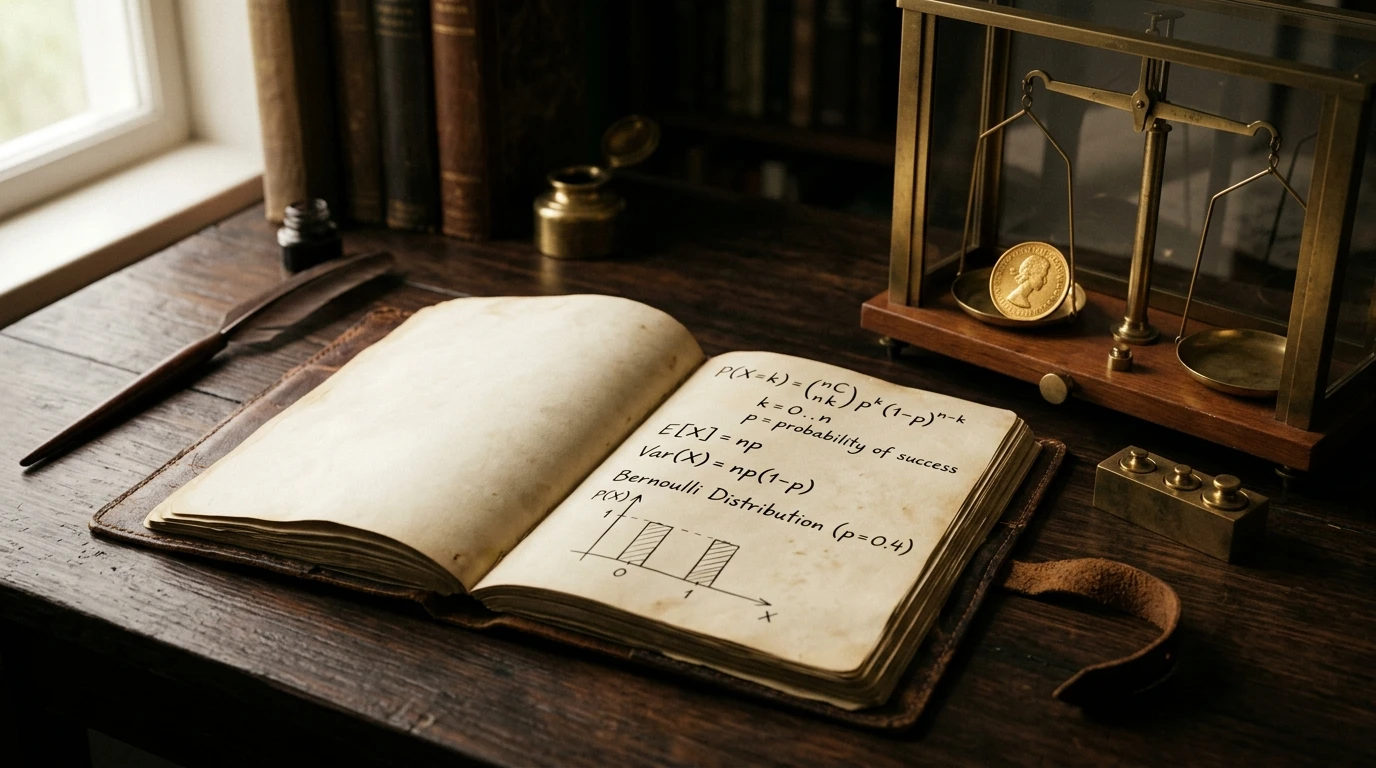 P(X=k) = (nC nk) p^k (1-p)^{n-k}
k = 0..n
p = probability of success
E[X] = np
Var(X) = np(1-p)
Bernoulli Distribution (p=0.4)
P(X)
1
0
1
X